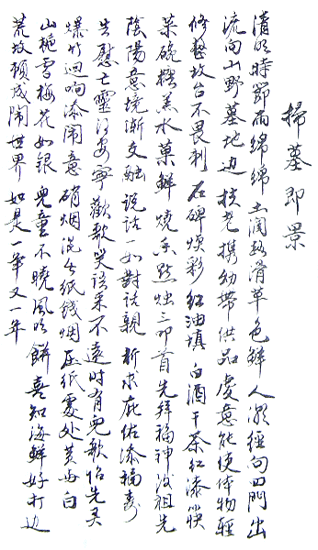 掃墓即景
清明時節雨綿綿 土潤致滑草色鮮 人潮徑向四門出
流向山野墓地边 扶老携幼帶供品 虔意能使体物輕
修整坟台不畏利 石碑煥彩紅油填 白酒干茶紅漆筷
菜碗糕羔水菓鮮 燒香點燭三叩首 先拜福神後祖先
陰陽意境漸交融 説話一如對話親 祈求庇佑添福壽
告慰亡靈得安寧 歡歌笑語采不遠 時有兒歌怡先灵
爆竹迴响添鬧意 硝烟混合紙錢烟 压紙處处黄与白
山梔雪梅花如銀 兒童不曉風吹餅 喜知海鮮好打边
荒坟頓成鬧世界 如是一年又一年